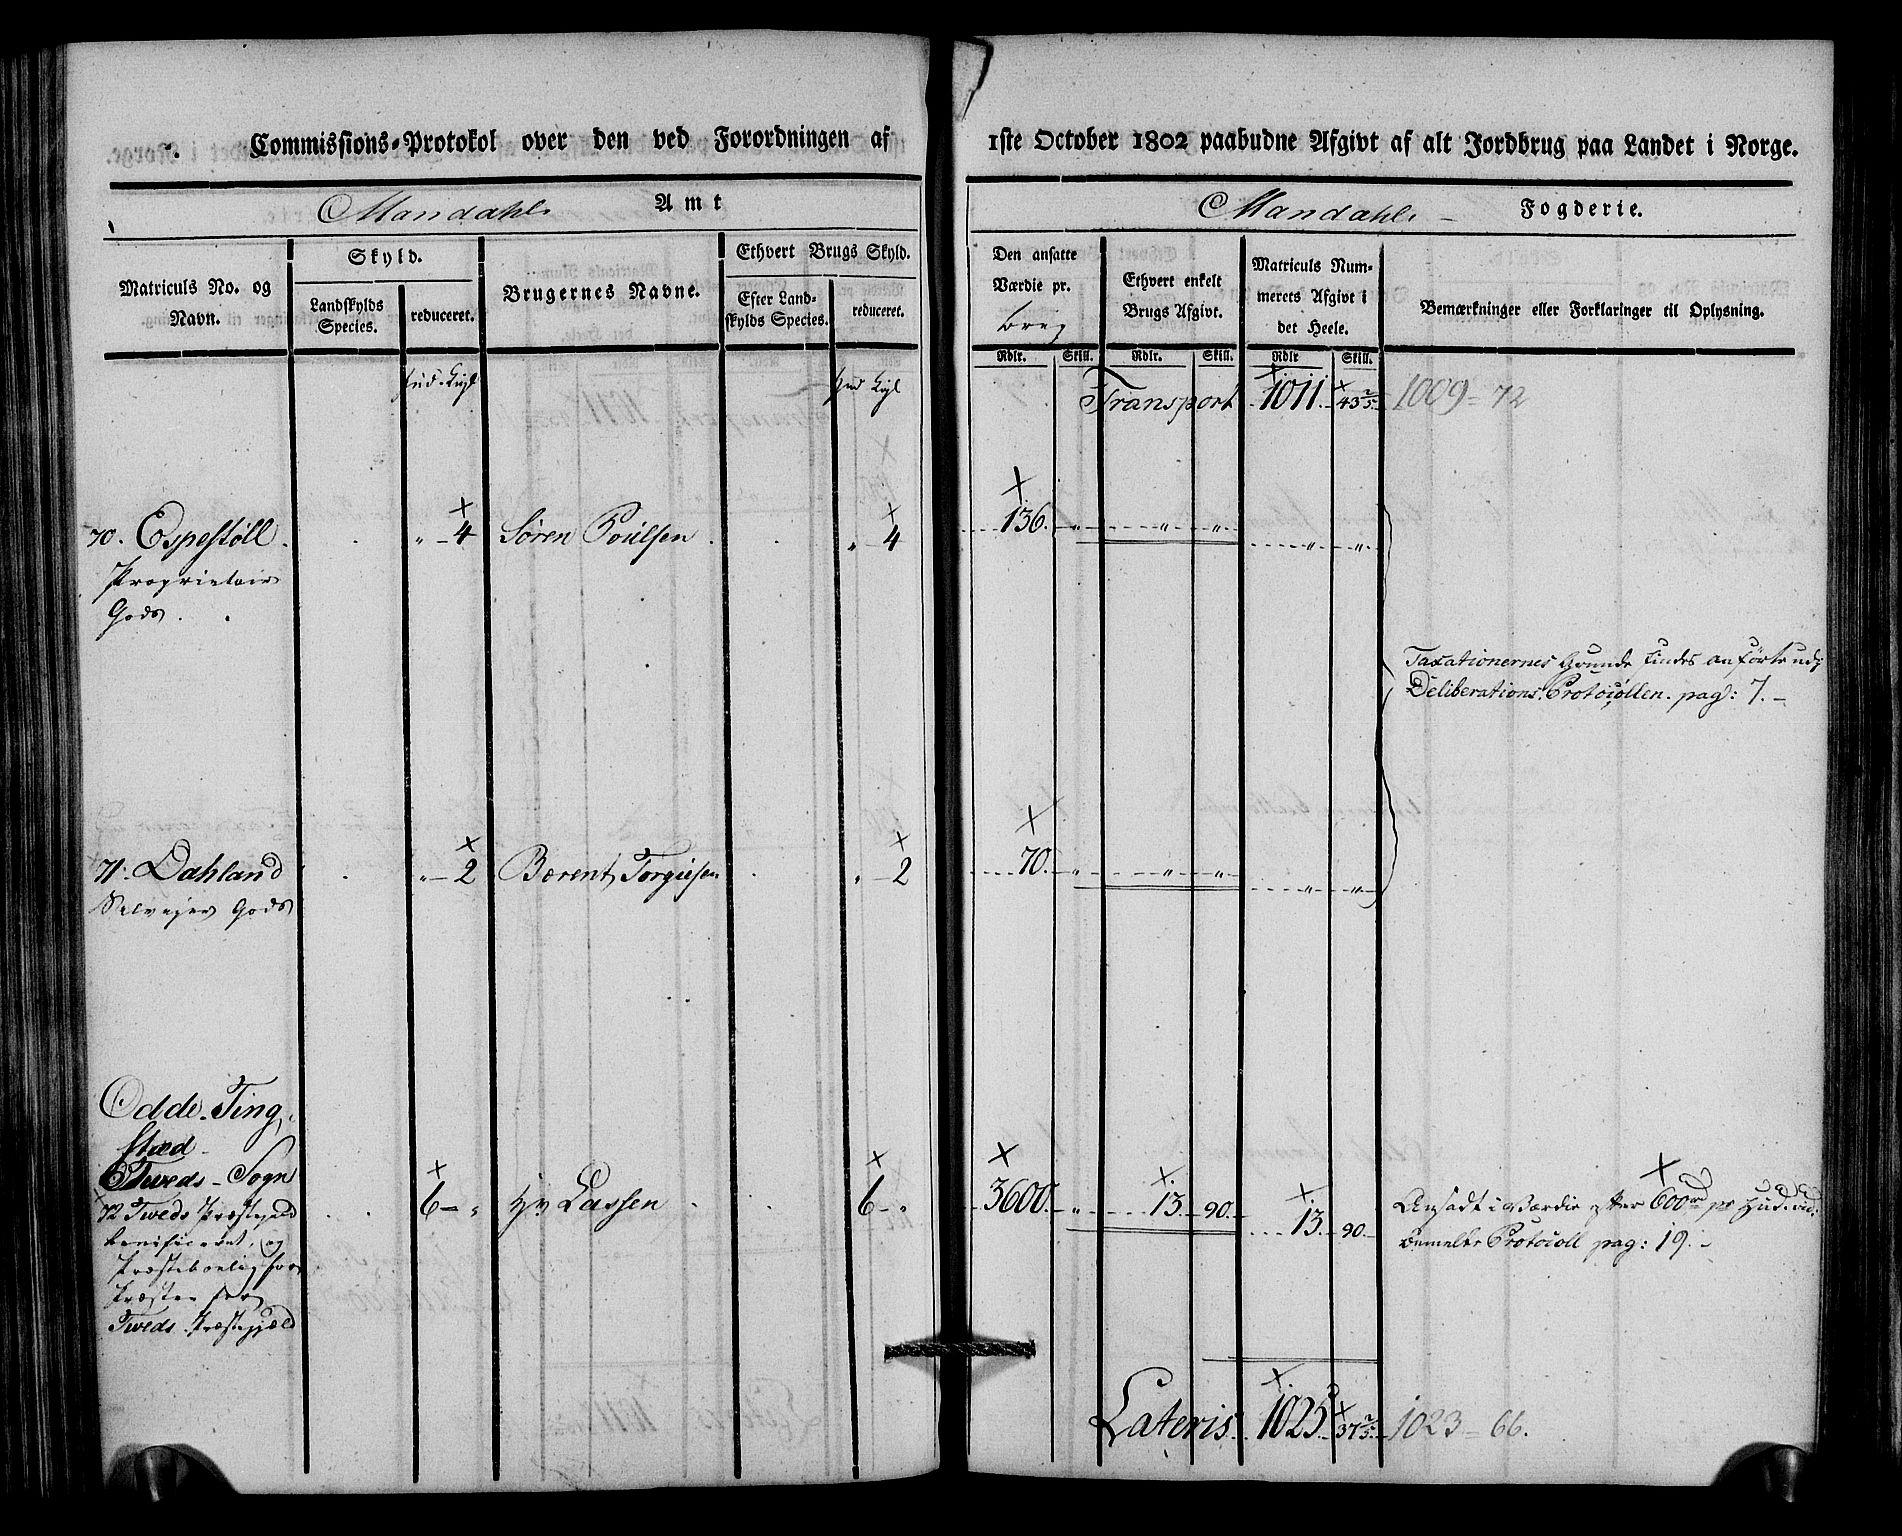 Commissions-Protokol over den ved Forordningen af 1ste October 1802 paabudne Afgivt af alt Jordbrug paa Landet i Norge.
Mandahls Amt
Mandahls Fogderie.
Matriculs No. og Navn.
Skyld.
Landskylds Species.
reduceret.
Brugernes Navne.
Ethvert Brugs Skyld.
Efter Landskylds Species.
reduceret.
Den ansatte Værdie pr.
brug
Ethvert enkelt Brugs Afgivt.
Matriculs Nummerets Afgivt i det Heele.
Bemærkninger eller Forklaringer til Oplysning.
Rdlr. Skill. Rdlr. Skill. Rdlr Skill.
Transport 1011. 43 2/5 1009 = 72
70. Espestøll. " 4 Søren Poulsen. " 4 136. " " " " "
Proprietair
Gods.
Taxationernes Grunde findes anførte udj
Deliberations Protocollen. pag: 7.
71. Dahland " 2 Berent Torgiesen " 2 70. " " " " "
Selveyer Gods
Odde-Ting
stæd
Tveds-Sogn
72 Tveds Præstegield 6 - " Hr Lassen 6 - " 3600. " 13. 90. 13. 90.
benificeret, og
Præstebolig for
Præsten for
Tveds Præstegjæld
Ansadt i Værdie efter 600rd pr Hud. vid.
bemelte Protocoll pag: 19.
Lateris 1025. 37 2/5 1023 = 66.